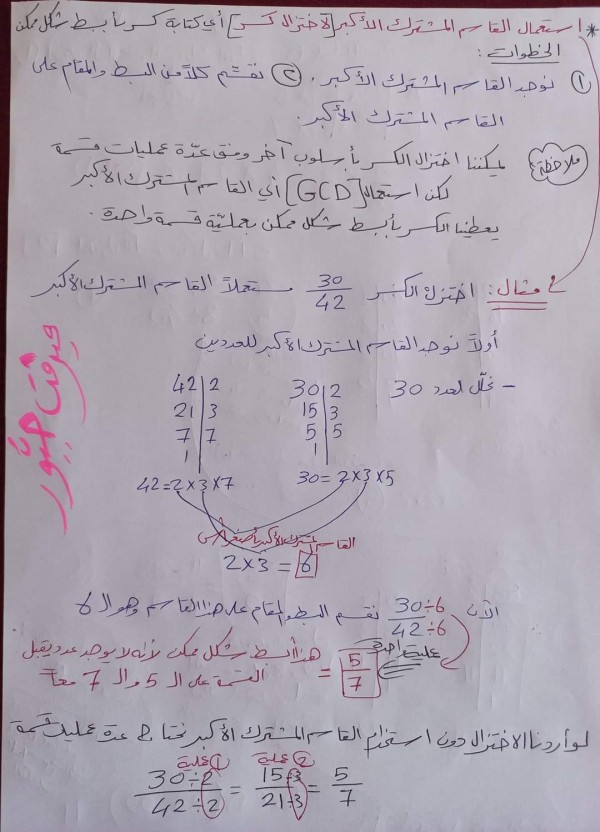 * استعمال القاسم المشترك الأكبر [لاختزال كسر] أي كتابة كسر بأبسط شكل ممكن
الخطوات:
① نوجد القاسم المشترك الأكبر. ② نقسم كلاً من البسط والمقام على
القاسم المشترك الأكبر.
ملاحظة
يمكننا اختزال الكسر بأسلوب آخر وفق عدّة عمليات قسمة
لكن استعمال [GCD] أي القاسم المشترك الأكبر
يعطينا الكسر بأبسط شكل ممكن بعمليّة قسمة واحدة.
مثال: اختزل الكسر 30/42 مستعملاً القاسم المشترك الأكبر
أولاً نوجد القاسم المشترك الأكبر للعددين
- نحلّل لعدد 30
30 | 2
15 | 3
5 | 5
1
42 | 2
21 | 3
7 | 7
1
30 = 2×3×5
42 = 2×3×7
القاسم المشترك الأكبر بأصغر أس
2×3 = 6
ميرفت
الآن 30÷6 / 42÷6 نقسم البسط والمقام على هذا القاسم وهو ال 6
عملية واحدة
= 5/7 هذا أبسط شكل ممكن لأنه لا يوجد عدد يقبل
القسمة على ال 5 وال 7 معاً
لو أردنا الاختزال دون استخدام القاسم المشترك الأكبر نحتاج عدة عمليات قسمة
عملية ① عملية ②
30÷2 / 42÷2 = 15÷3 / 21÷3 = 5/7